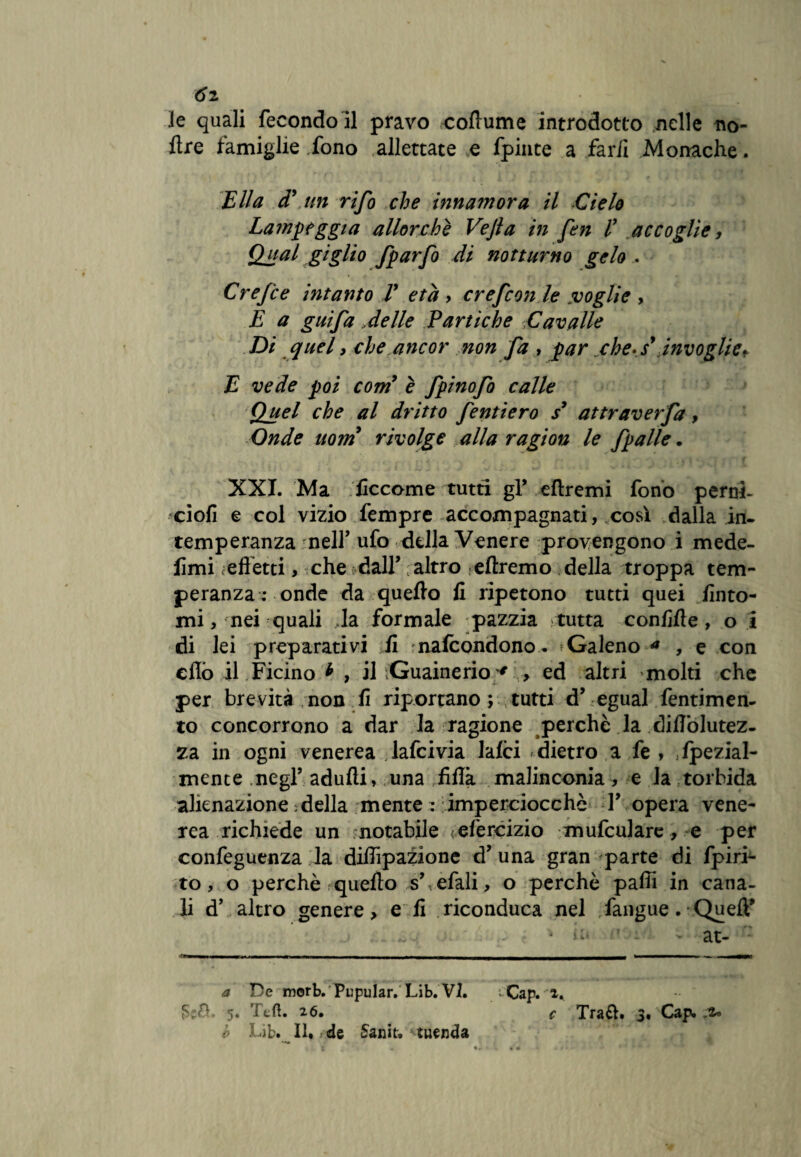 62
le quali ſecondo il pravo coſtume introdotto nelle no-
ſtre famiglie ſono allettate e ſpinte a farſi Monache.
Ella d' un riſo che innamora il Cielo
Lampeggia allorchè Veſta in ſen l' accoglie,
Qual giglio ſparſo di notturno gelo.
Creſce intanto l' età, creſcon le voglie,
E a guiſa delle Partiche Cavalle
Di quel, che ancor non fa, par che s' invoglie.
E vede poi com' è ſpinoſo calle
Quel che al dritto ſentiero s' attraverſa,
Onde uom' rivolge alla ragion le ſpalle.
XXI. Ma ſiccome tutti gl' eſtremi ſono perni-
cioſi e col vizio ſempre accompagnati, così dalla in-
temperanza nell' uſo della Venere provengono i mede-
ſimi effetti, che dall' altro eſtremo della troppa tem-
peranza: onde da queſto ſi ripetono tutti quei ſinto-
mi, nei quali la formale pazzia tutta conſiſte, o i
di lei preparativi ſi naſcondono. Galeno a, e con
eſſo il Ficino b, il Guainerio c, ed altri molti che
per brevità non ſi riportano; tutti d' egual ſentimen-
to concorrono a dar la ragione perchè la diſſolutez-
za in ogni venerea laſcivia laſci dietro a ſe, ſpezial-
mente negl' aduſti, una fiſſa malinconia, e la torbida
alienazione della mente: imperciocchè l' opera vene-
rea richiede un notabile eſercizio muſculare, e per
conſeguenza la diſſipazione d' una gran parte di ſpiri-
to, o perchè queſto s' eſali, o perchè paſſi in cana-
li d' altro genere, e ſi riconduca nel ſangue. Queſt'
at-
a De morb. Pupular. Lib. VI. Cap. 2.
Sect. 5. Teſt. 26. c Tract. 3. Cap. 2.
b Lib. II. de Sanit. tuenda